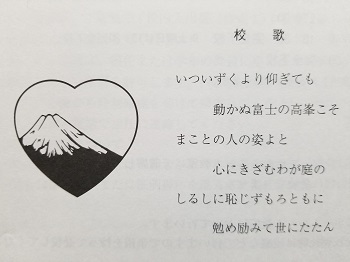 校　歌
いついずくより仰ぎても
動かぬ富士の高峯こそ
まことの人の姿よと
心にきざむわが庭の
しるしに恥じずもろともに
勉め励みて世にたたん